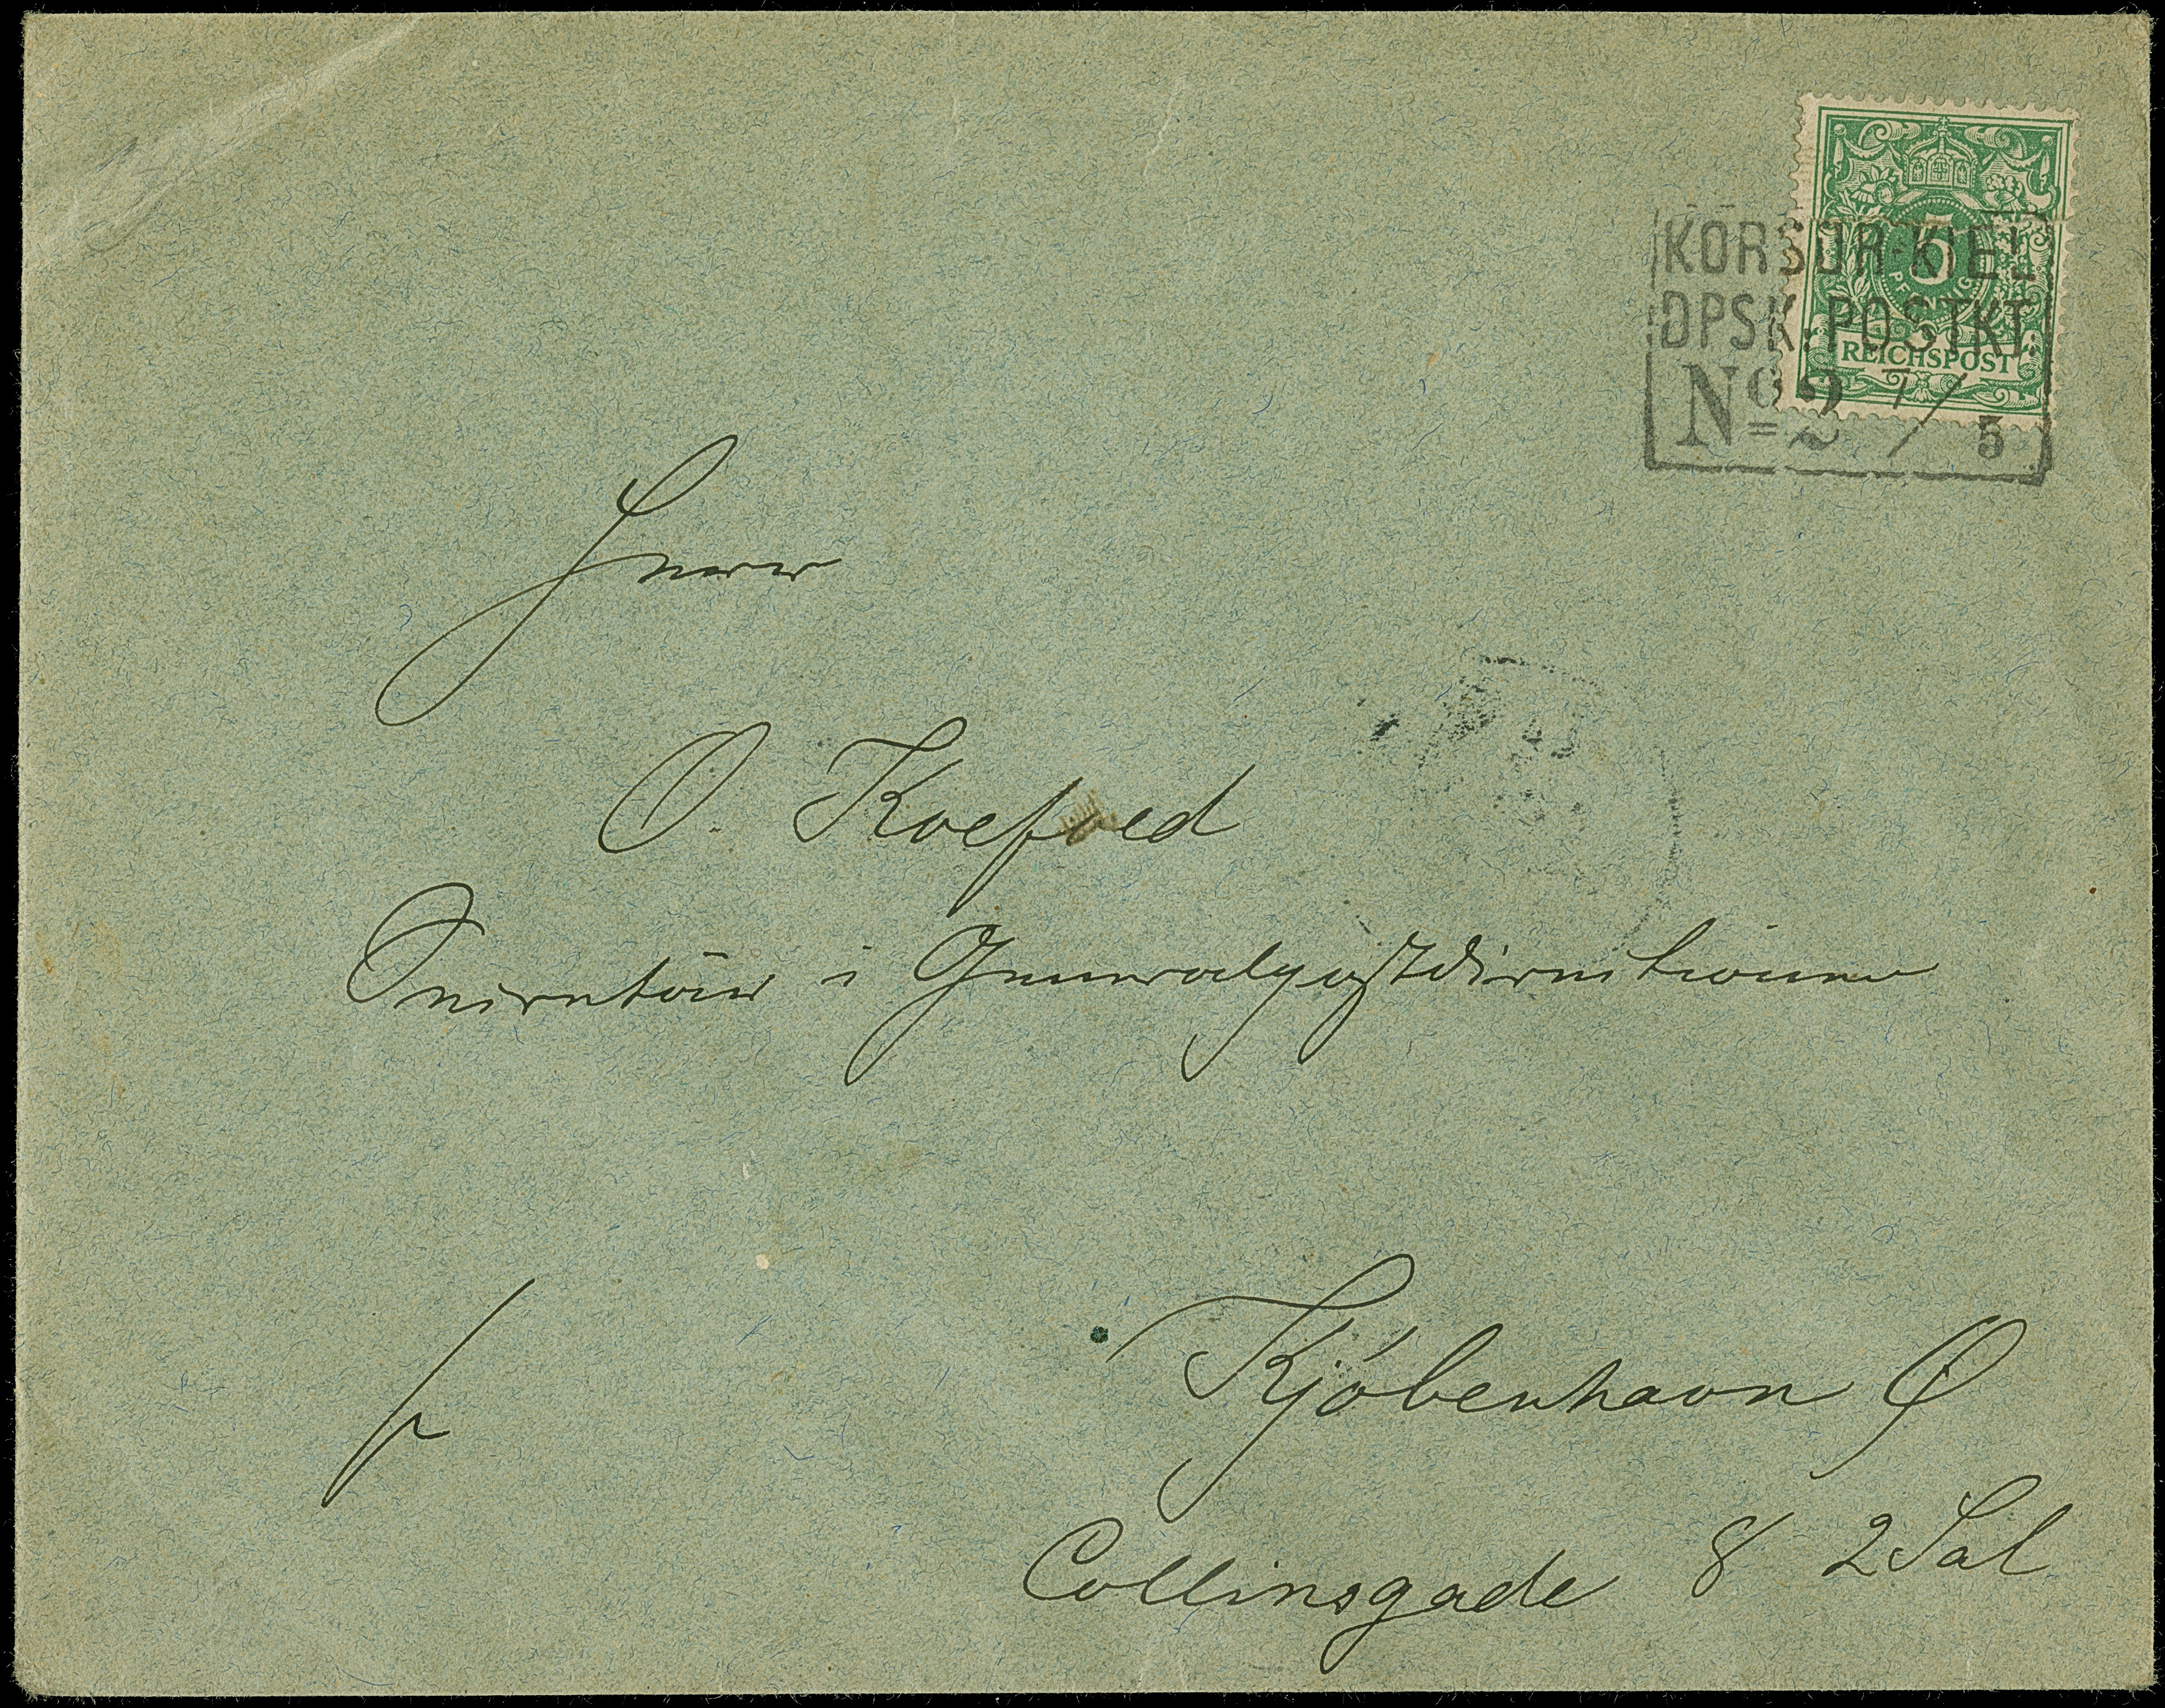 5
PFENNIG
REICHSPOST
KORSØR-KIEL
DPSK. POSTKT.
No 2 7/5
Herrn
O. Koefoed
Sekretär i Generalpostdirektionen
Kjöbenhavn Ø
Collinsgade 8 2 Sal